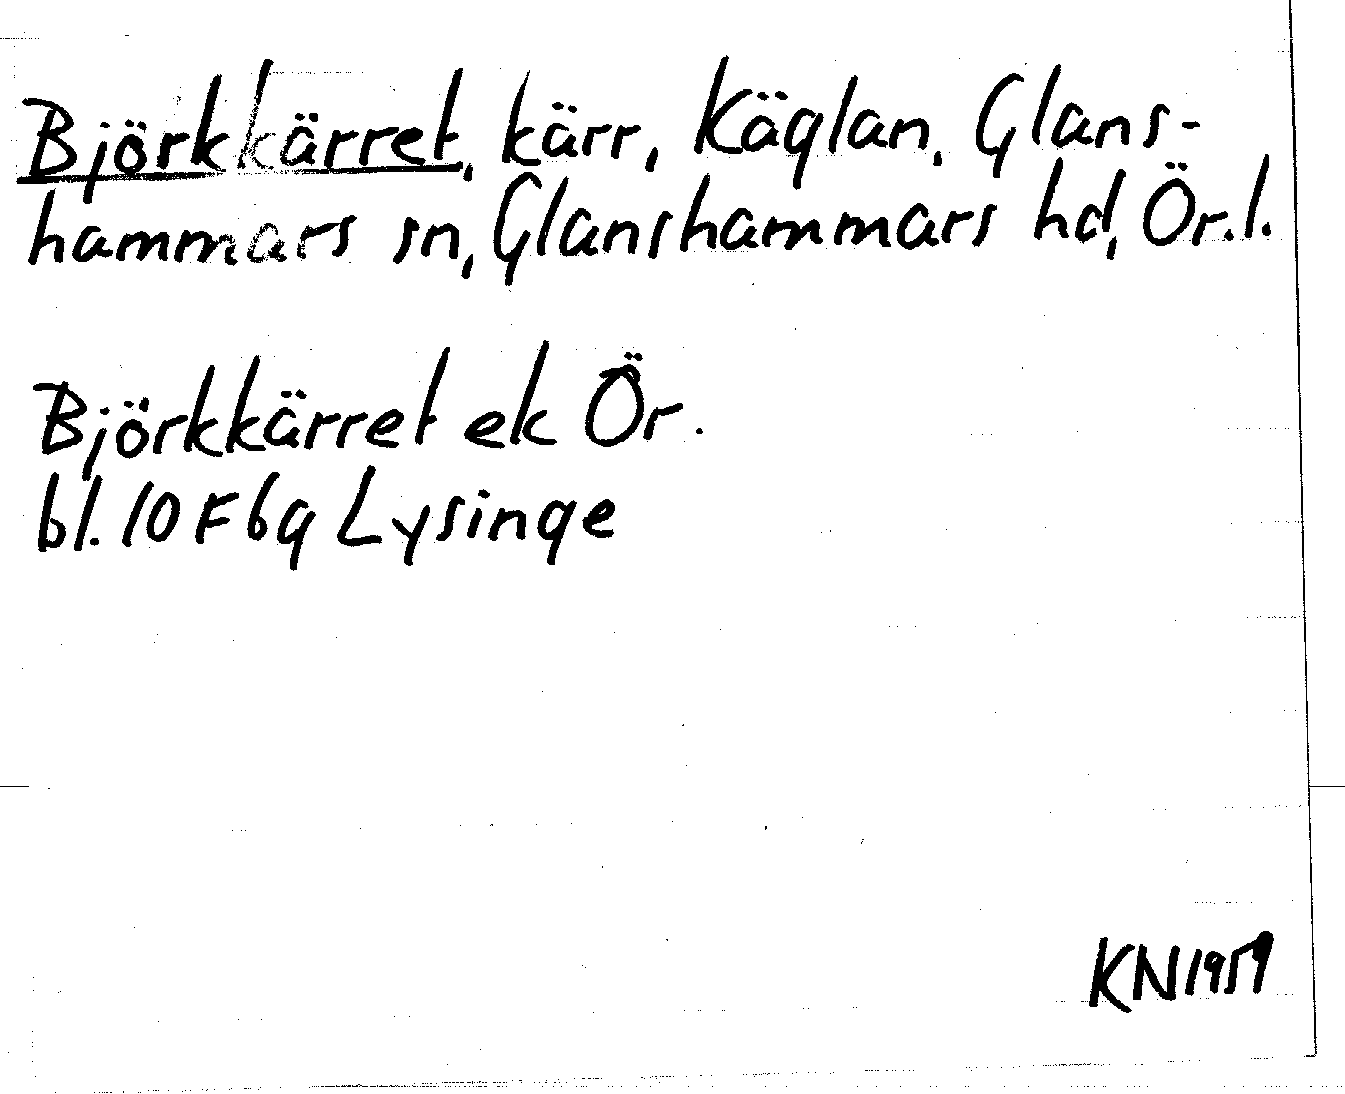 Björkkärret, kärr, Käglan, Glans-
hammars sn, Glanshammars hd, Ör.l.
Björkkärret ek Ör.
bl. 10F6g Lysinge
KN 1959